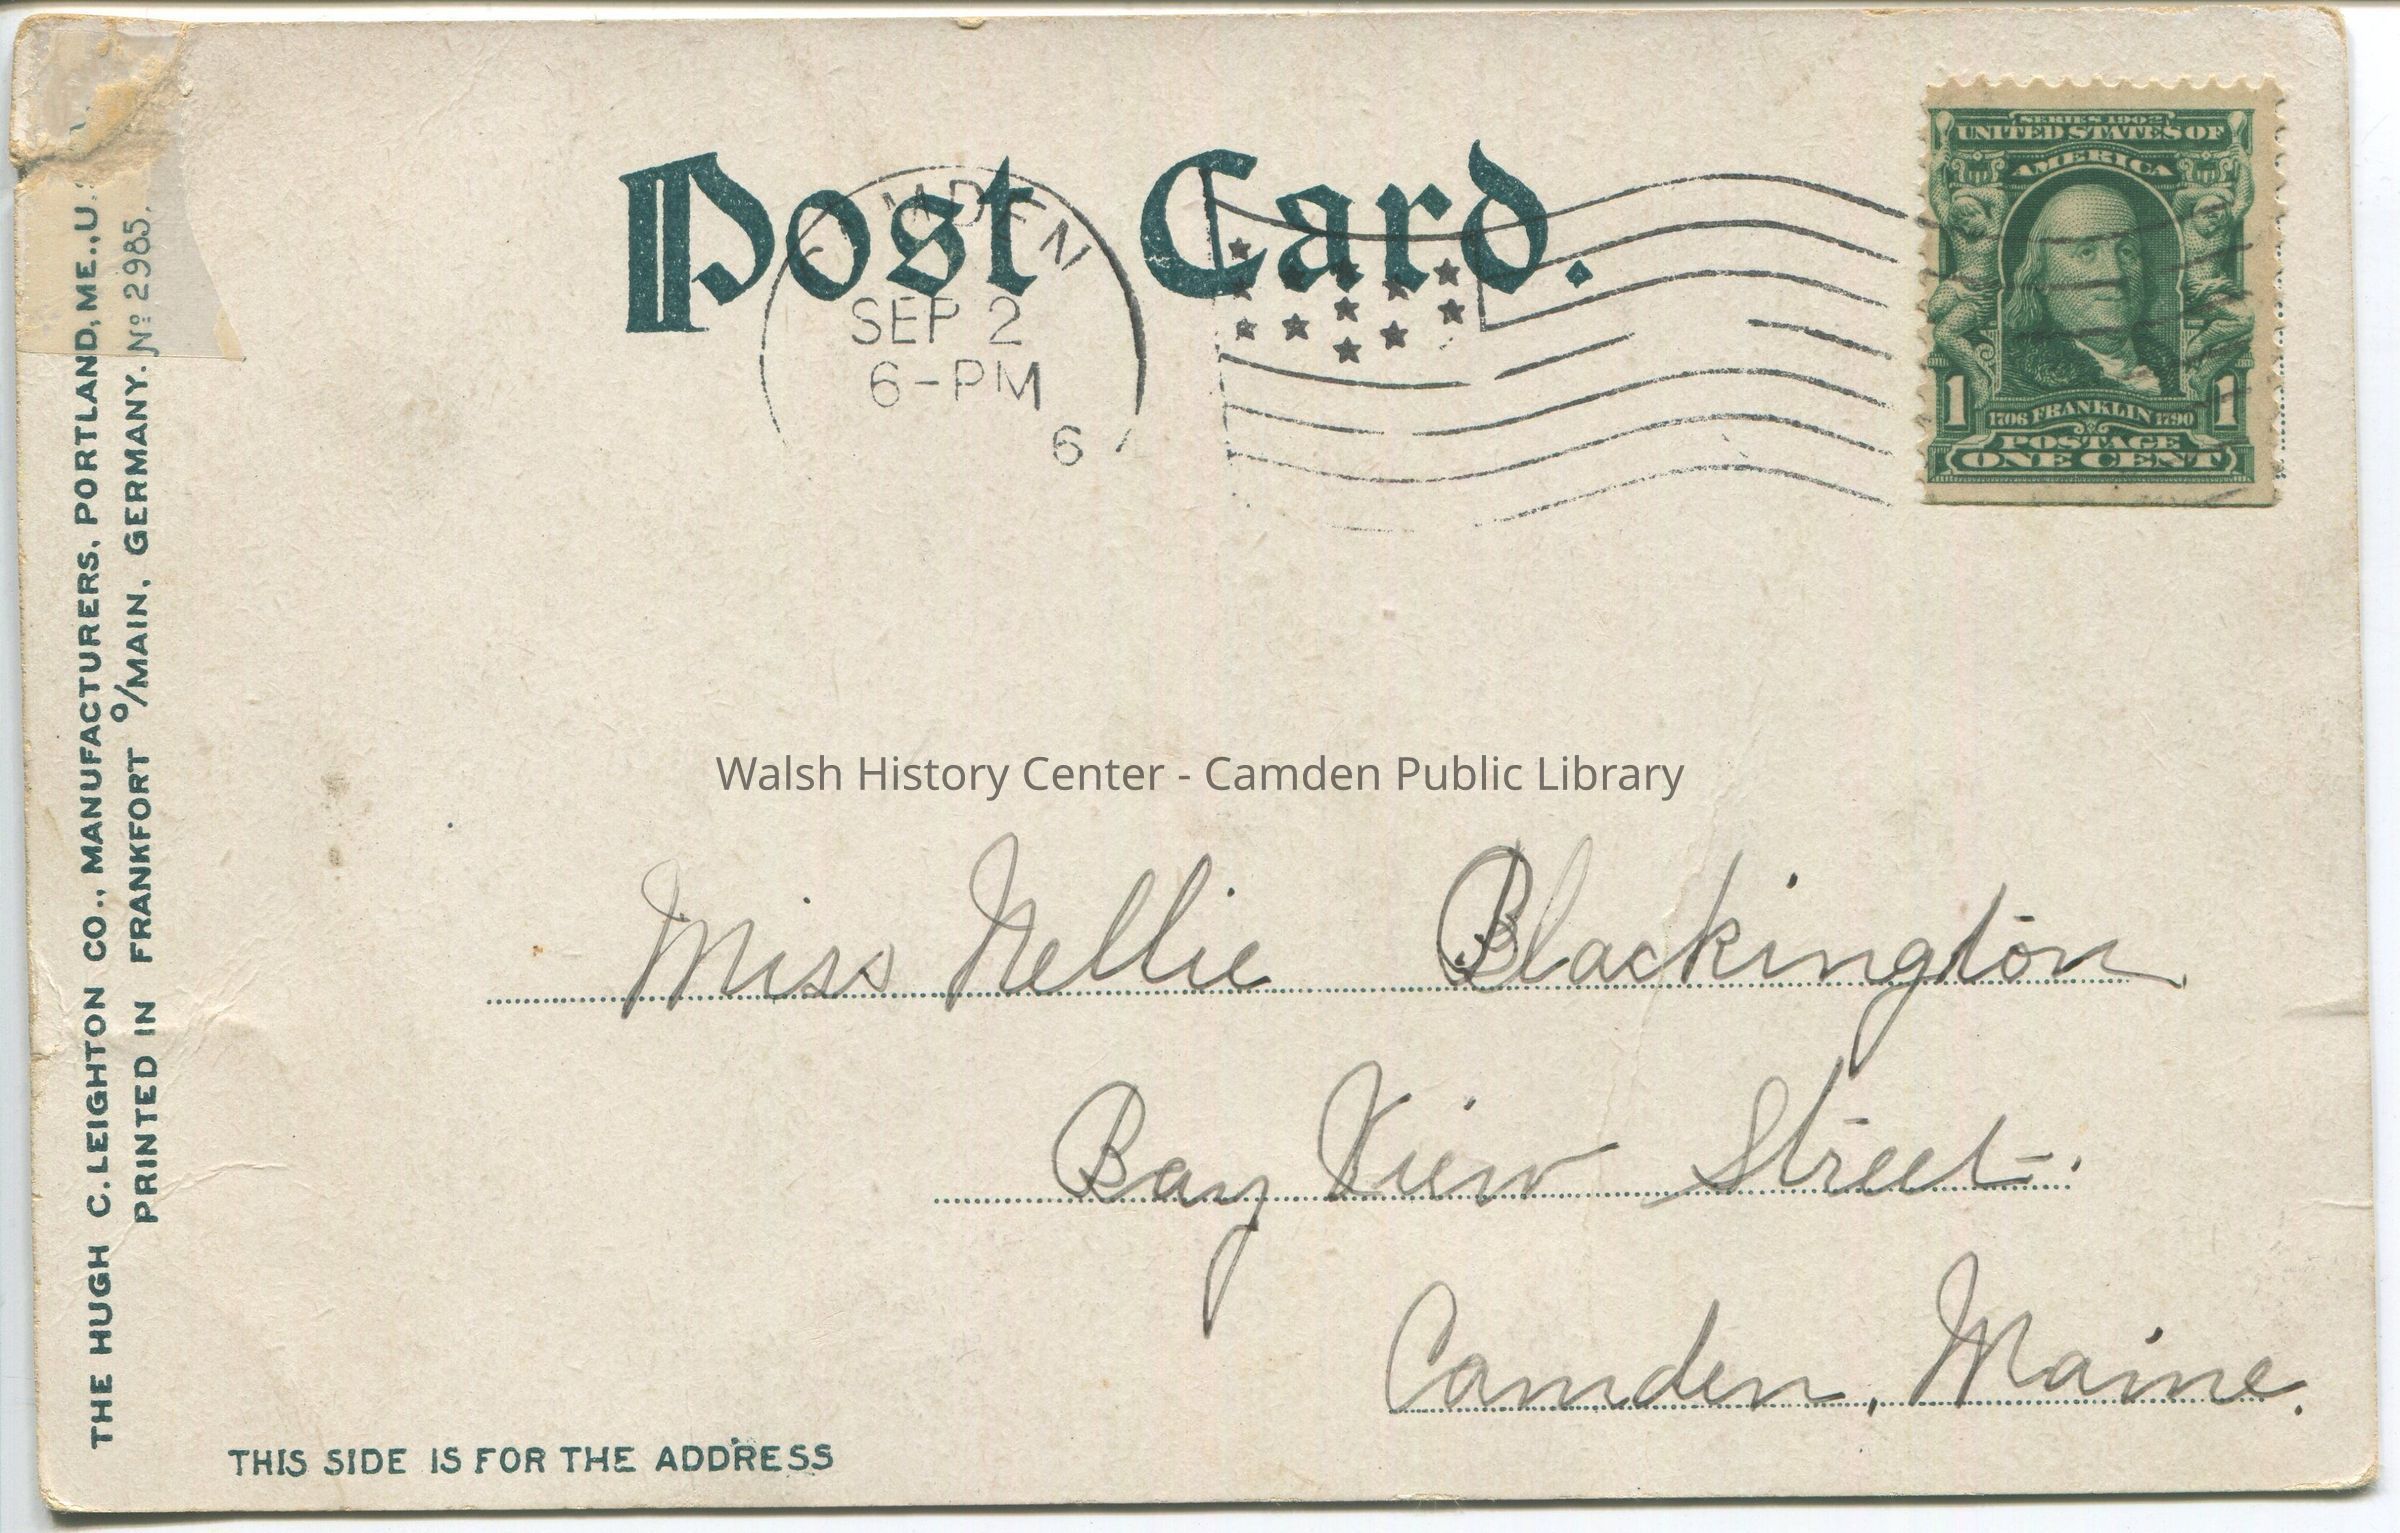 Post Card.
CAMDEN
SEP 2
6-PM
6
SERIES 1902
UNITED STATES OF
AMERICA
1 1706 FRANKLIN 1790 1
POSTAGE
ONE CENT
THE HUGH C. LEIGHTON CO., MANUFACTURERS, PORTLAND, ME., U.
PRINTED IN FRANKFORT o/MAIN, GERMANY. No 2985.
Walsh History Center - Camden Public Library
Miss Nellie Blackington
Bay View Street.
Camden, Maine.
THIS SIDE IS FOR THE ADDRESS